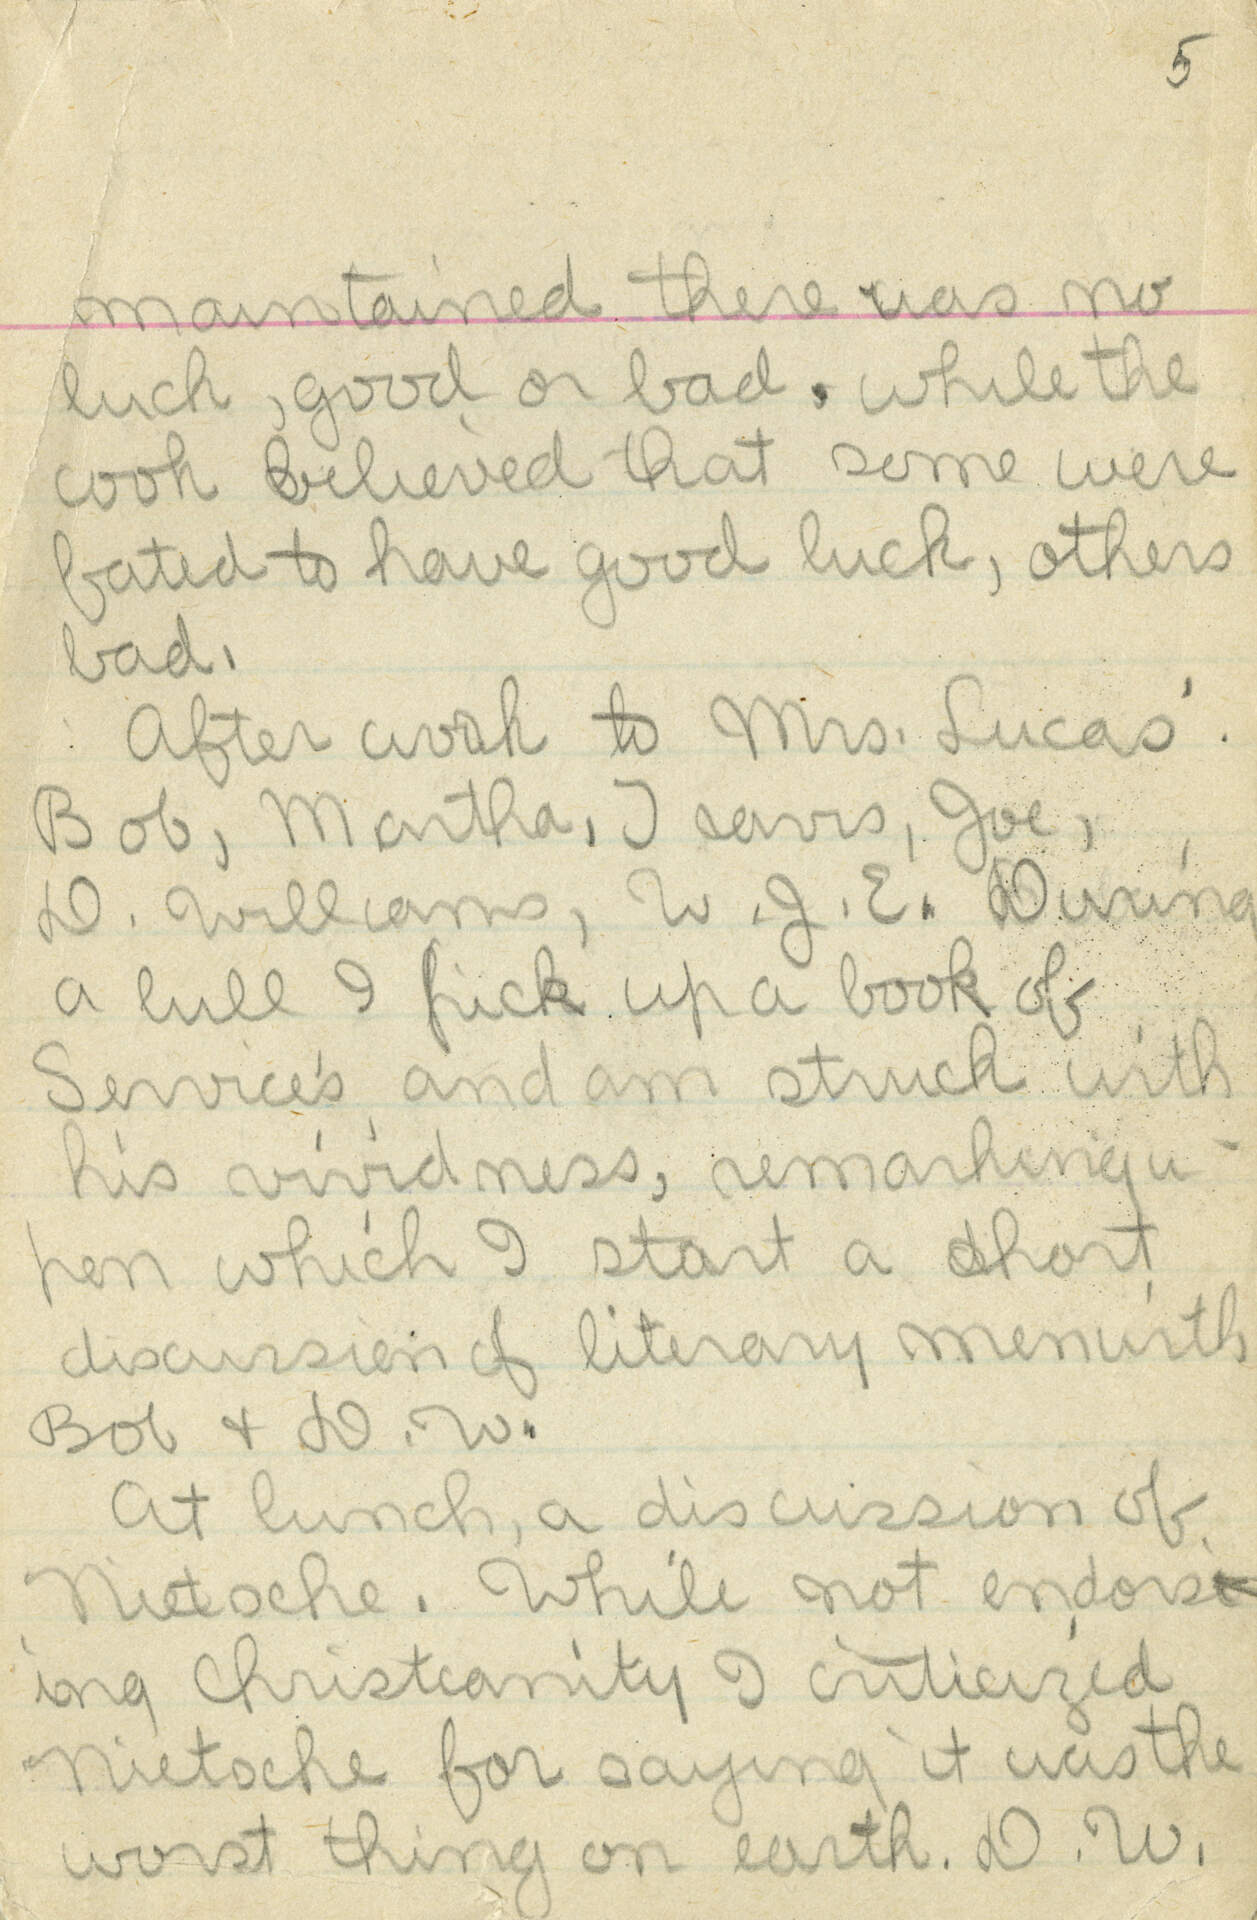 5
maintained there was no
luck, good or bad. while the
cook believed that some were
fated to have good luck, others
bad.
After work to Mrs. Lucas'.
Bob, Martha, Joe,
D. Williams, W.J.E. During
a lull I pick up a book of
Service's and am struck with
his vividness, remarking u-
pon which I start a short
discussion of literary men with
Bob & D.W.
At lunch, a discussion of
Nietsche. While not endors
ing Christianity I criticized
Nietsche for saying it was the
worst thing on earth. D.W.